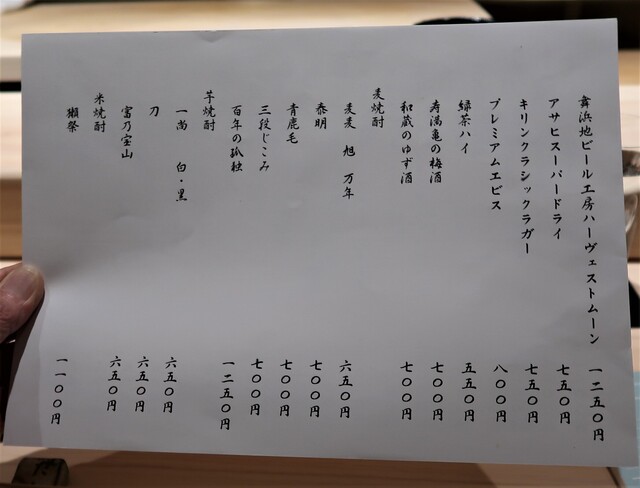 舞浜地ビール工房ハーヴェストムーン 一二五〇円
アサヒスーパードライ 七五〇円
キリンクラシックラガー 七五〇円
プレミアムエビス 八〇〇円
緑茶ハイ 五五〇円
寿満亀の梅酒 七〇〇円
和蔵のゆず酒 七〇〇円
麦焼酎
麦麦 旭 万年 六五〇円
泰明 七〇〇円
青鹿毛 七〇〇円
三段じこみ 七〇〇円
百年の孤独 一二五〇円
芋焼酎
一尚 白・黒 六五〇円
刀 六五〇円
富乃宝山 六五〇円
米焼酎
獺祭 一一〇〇円